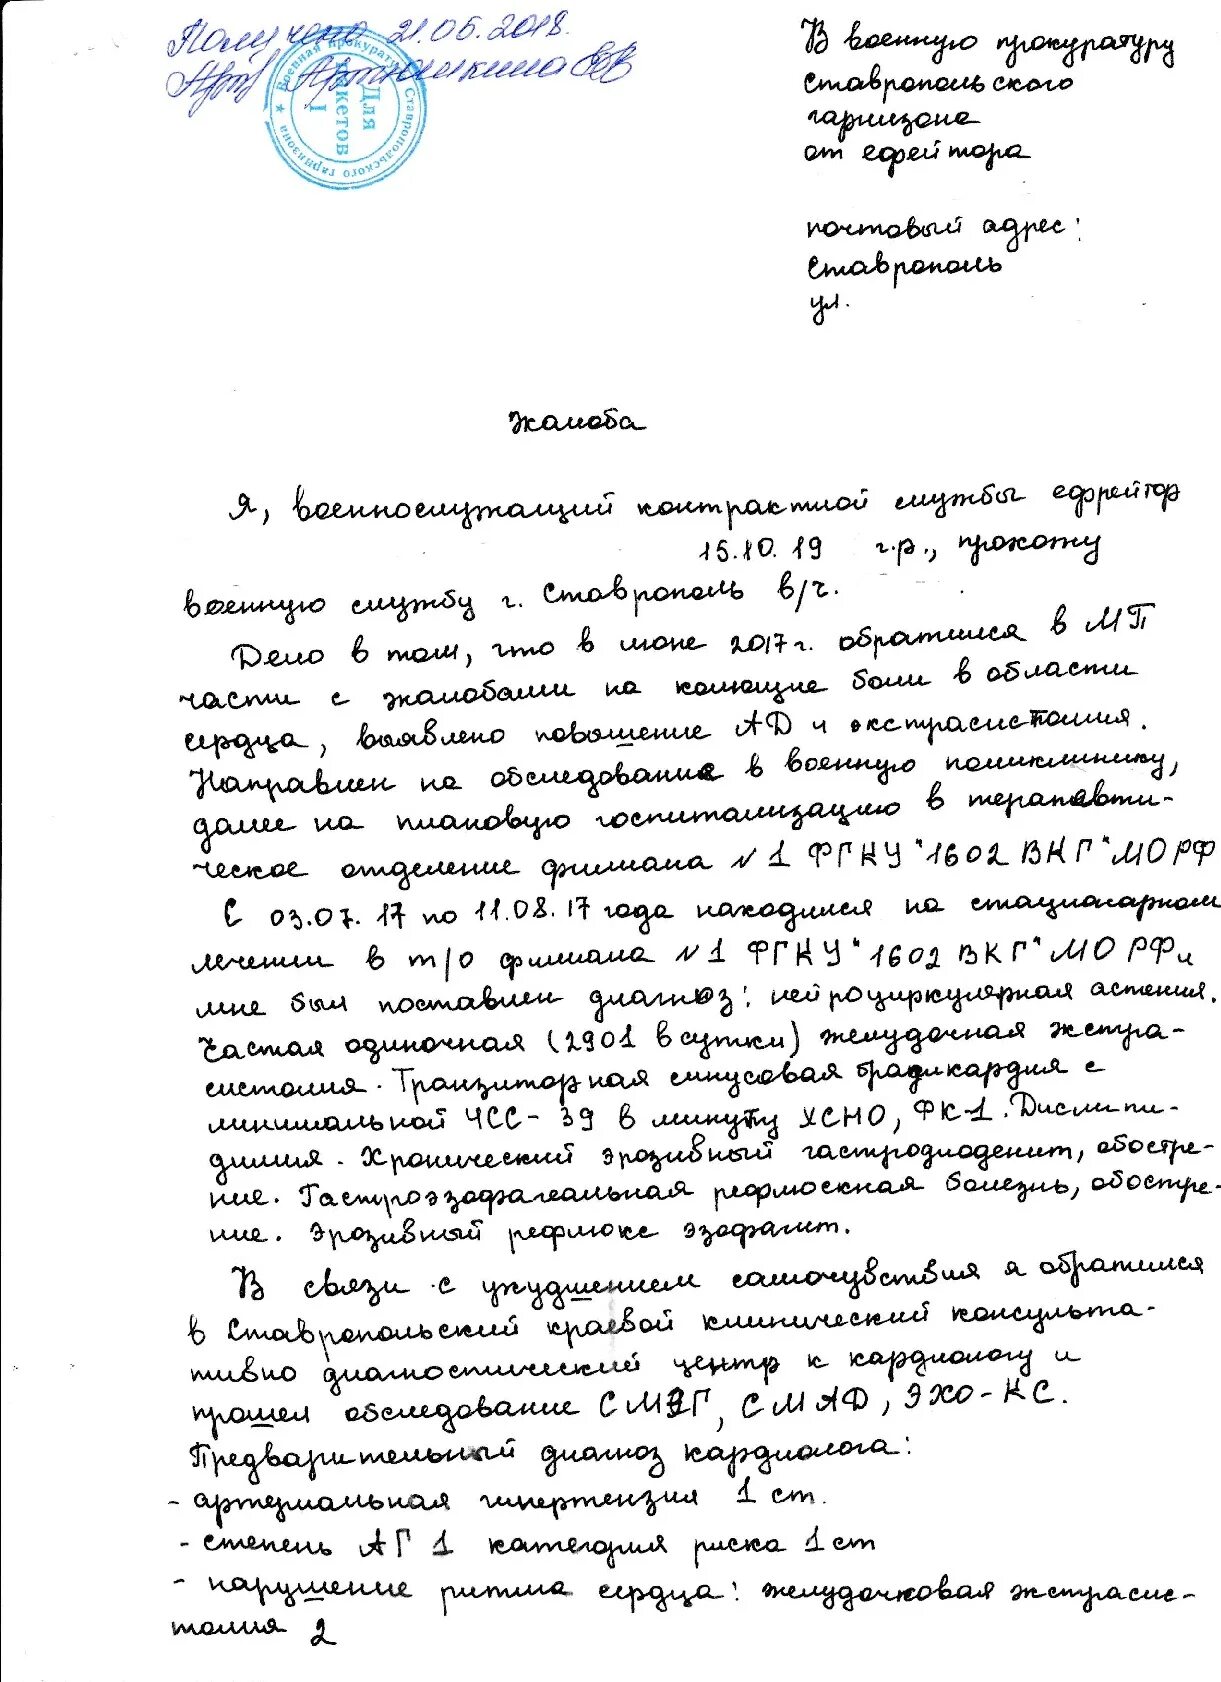 Получено 21.06.2018.
Артюшкина
Военная прокуратура Ставропольского гарнизона
Для
пакетов
1
В военную прокуратуру
Ставропольского
гарнизона
от ефрейтора
почтовый адрес:
Ставрополь
ул.
Жалоба
Я, военнослужащий контрактной службы ефрейтор
15.10.19 г.р., прохожу
военную службу г. Ставрополь в/ч.
Дело в том, что в июне 2017г. обратился в МП
части с жалобами на колющие боли в области
сердца, выявлено повышение АД и экстрасистолия.
Направлен на обследование в военную поликлинику,
далее на плановую госпитализацию в терапевти-
ческое отделение филиала №1 ФГКУ "1602 ВКГ" МО РФ
С 03.07.17 по 11.08.17 года находился на стационарном
лечении в т/о филиала №1 ФГКУ "1602 ВКГ" МО РФ и
мне был поставлен диагноз: нейроциркулярная астения.
Частая одиночная (2901 в сутки) желудочная экстра-
систолия. Транзиторная синусовая брадикардия с
минимальной ЧСС - 39 в минуту ХСНО, ФК-1. Дислипи-
димия. Хронический эрозивный гастродиоденит, обостре-
ние. Гастроэзофагеальная рефлюксная болезнь, обостре-
ние. Эрозивный рефлюкс эзофагит.
В связи с ухудшением самочувствия я обратился
в Ставропольский краевой клинический консульта-
тивно диагностический центр к кардиологу и
прошел обследование СМЭГ, СМАД, ЭХО-КС.
Предварительный диагноз кардиолога:
- артериальная гипертензия 1 ст.
- степень АГ 1 категория риска 1 ст
- нарушение ритма сердца: желудочковая экстрасис-
толия 2